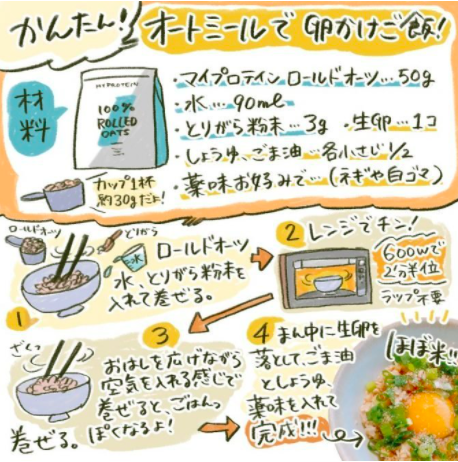 かんたん! オートミールで 卵かけご飯!
材料
MYPROTEIN
100%
ROLLED
OATS
カップ1杯
約30gだよ!
・マイプロテイン ロールドオーツ…50g
・水…90ml
・とりがら粉末…3g ・生卵…1コ
・しょうゆ、ごま油…各小さじ1/2
・薬味お好みで…(ネギや白ゴマ)
1
ロールドオーツ
とりがら
水
ロールドオーツ
水、とりがら粉末を
入れて巻ぜる。
2 レンジでチン!
600Wで
2分半位
ラップ不要
3
ざくっ
おはしを広げながら
空気を入れる感じで
巻ぜると、ごはんっ
ぽくなるよ!
巻ぜる。
4 まん中に生卵を
落として、ごま油
としょうゆ、
薬味を入れて
完成!!!
ほぼ米!!